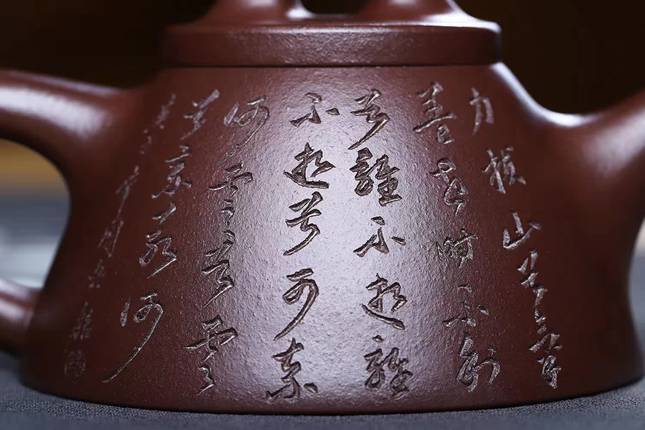 力拔山兮氣
蓋世時不利
兮騅不逝騅
不逝兮可奈
何虞兮虞
兮奈若何